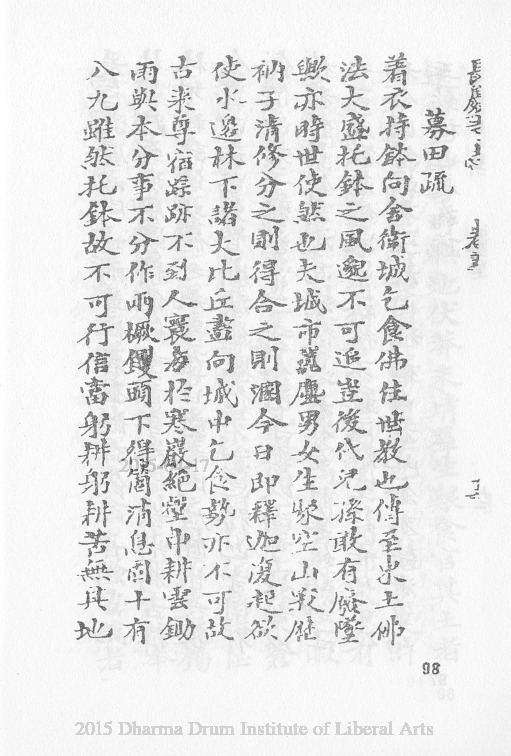 募田疏
着衣持鉢向舍衛城乞食佛住世教也傳至東土佛
法大盛托鉢之風邈不可追豈後代兒孫敢有廢墜
歟亦時世使然也夫城市廛男女生聚空山
衲子清修分之則得合之則溷今日即釋迦復起欲
使水邊林下諸大比丘盡向城中乞食勢亦不可故
古來尊宿踪跡不到人寰每於寒巖絕壑中耕雲鋤
雨與本分事不分作兩橛钁頭下得箇消息者十有
八九雖然托鉢故不可行信當躬耕躬耕苦無其地
98
2015 Dharma Drum Institute of Liberal Arts